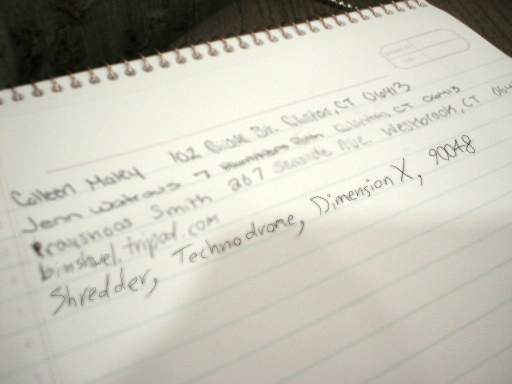 Colleen Maley 102 St. Clinton, CT 06413
Jenn 7 Clinton, CT
Smith 267 Seaside Ave. Westbrook, CT
binshwel.tripod.com
Shredder, Technodrome, Dimension X, 90048